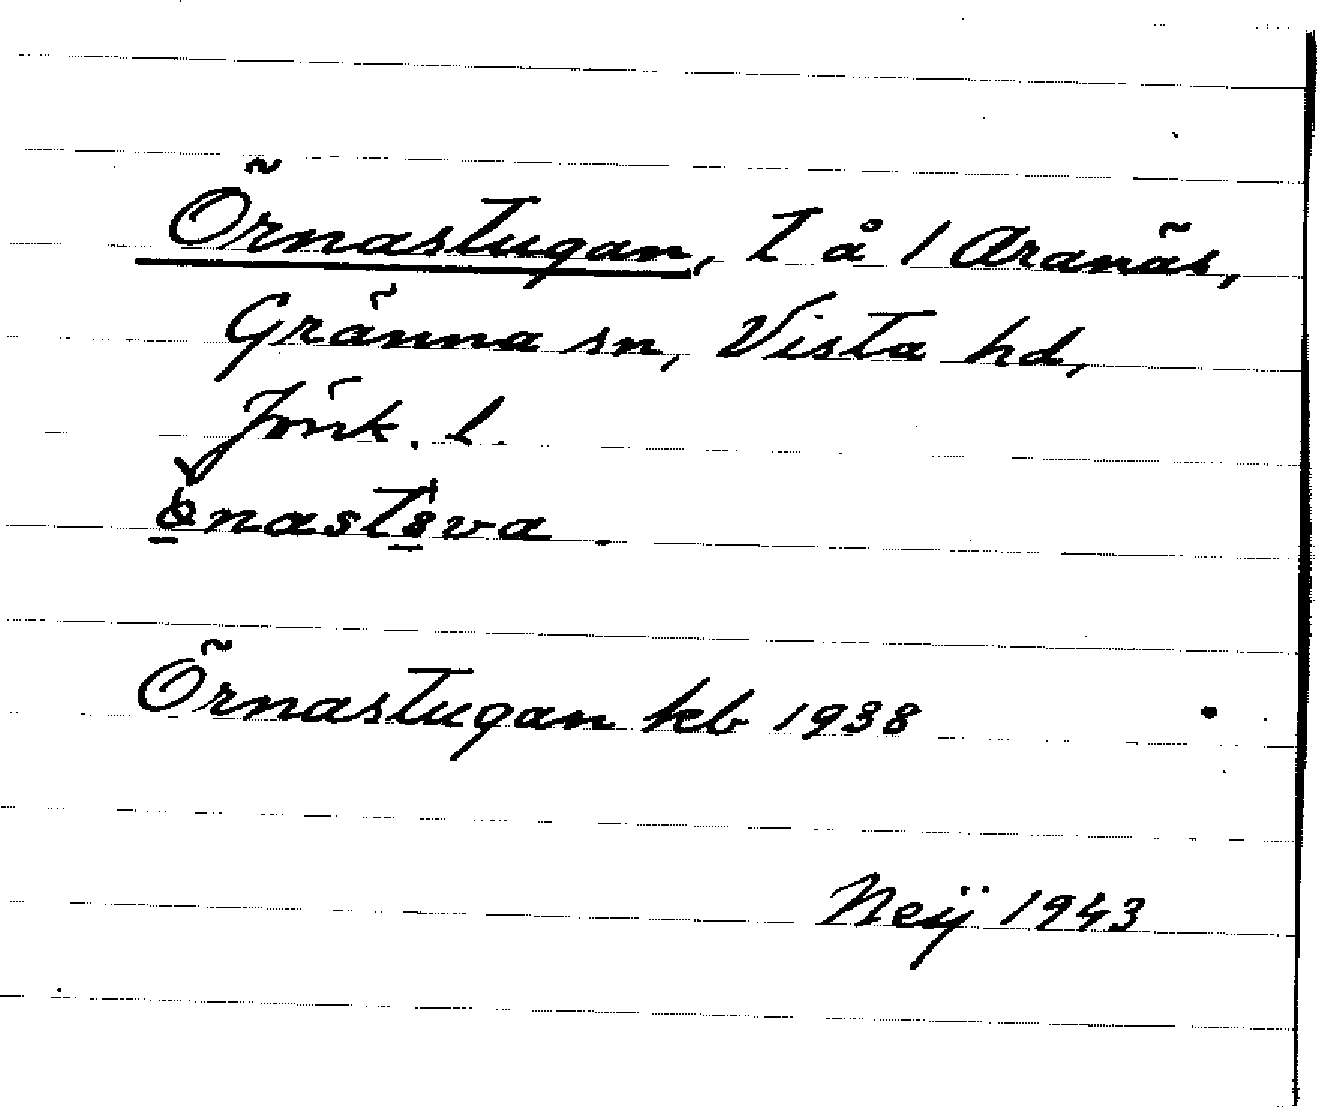 Örnastugan, t å 1 Aranäs,
Gränna sn, Vista hd,
Jönk. l.
Örnastugan kb 1938
Neij 1943